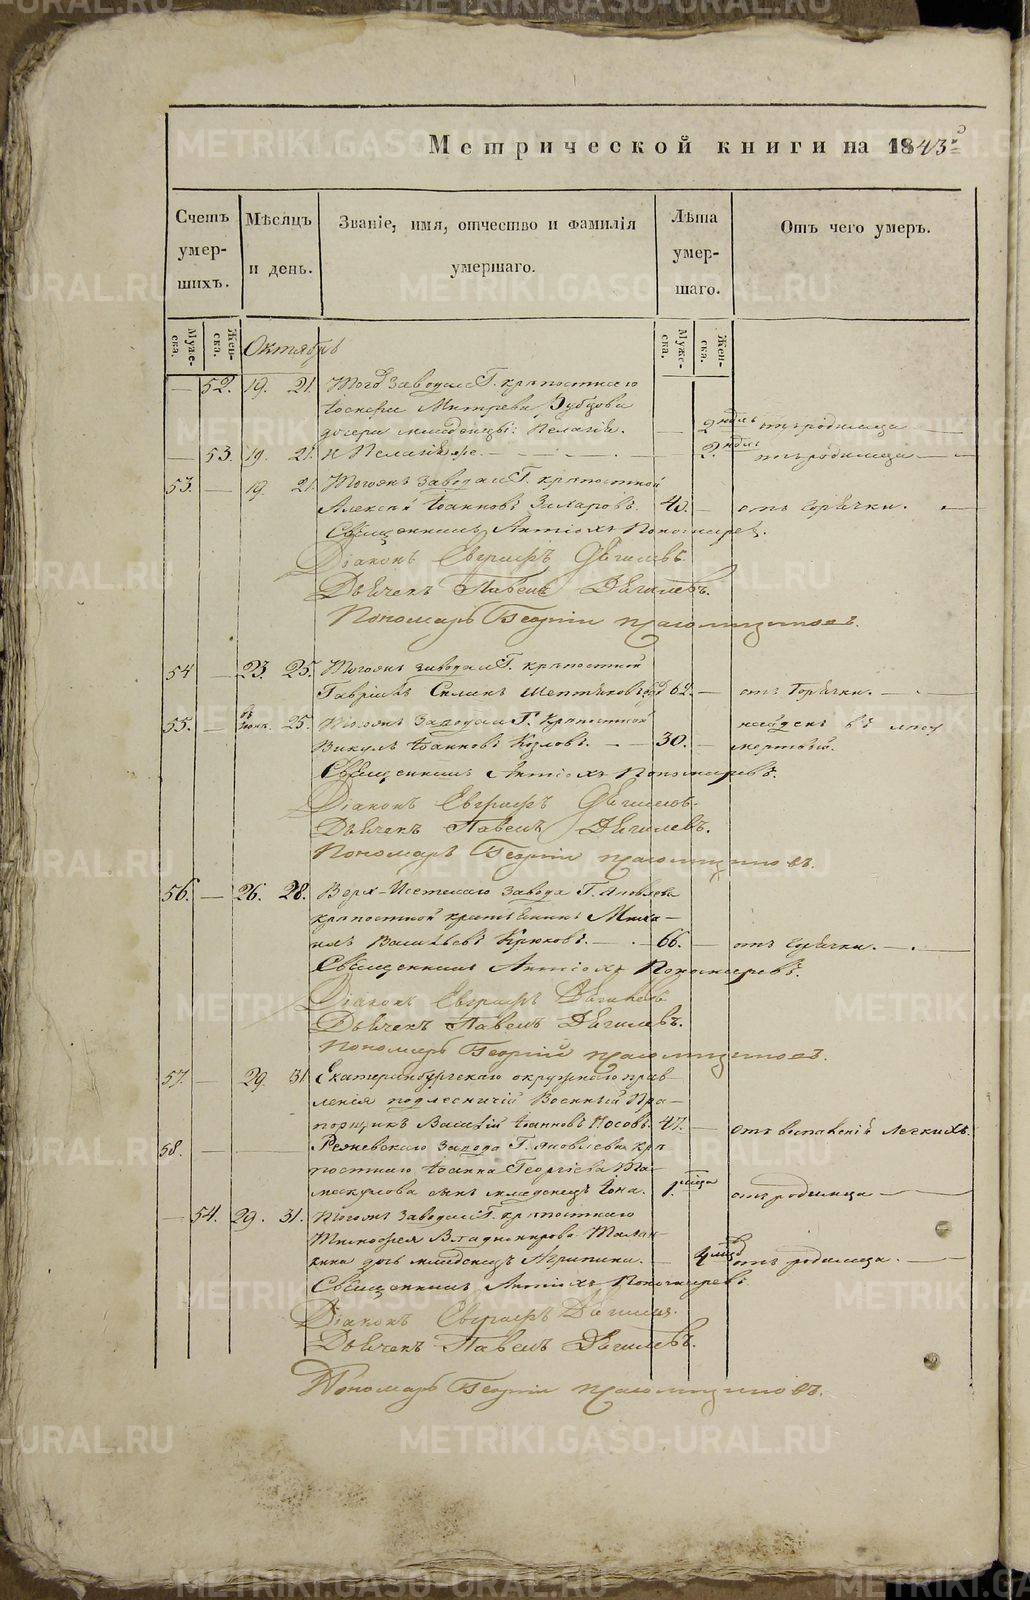 Метрической книги на 1843 г.
Счетъ умершихъ.
Мѣсяцъ и день.
Званіе, имя, отчество и фамилія умершаго.
Лѣта умершаго.
Отъ чего умеръ.
Мужеска.
Женска.
Октябрь
Мужеска.
Женска.
— 52. 19. 21. Того Завода Г. крѣпостнаго
Митрева Зубцова
дочери младенцы: Пелагія. — 2 недѣль отъ родимца —
— 53. 19. 21. и Пелагія же. — 2. недѣль отъ родимца —
53. — 19 21. Завода Г. крѣпостной
Алексѣй Іоанновъ Захаровъ. 40. — отъ горячки.
Священникъ Антіохъ Пономаревъ.
Діаконъ Евграфъ Дягилевъ
Дьячекъ Павелъ Дягилевъ.
Пономарь Георгій
54 — 23. 25. Завода Г. крѣпостной
Гавріилъ Силинъ 62. — отъ горячки. —
55. — 25. Завода Г. крѣпостной найденъ въ лесу
Викулъ Іоанновъ Козловъ. — 30. — мертвый.
Священникъ Антіохъ Пономаревъ.
Діаконъ Евграфъ Дягилевъ.
Дьячекъ Павелъ Дягилевъ.
Пономарь Георгій
56. — 26. 28. Верх-Исетскаго завода Г. Яковлева
крѣпостной крестьянинъ Миха-
илъ Васильевъ Крюковъ. — 66. — отъ горячки. —
Священникъ Антіохъ Пономаревъ.
Діаконъ Евграфъ Дягилевъ
Дьячекъ Павелъ Дягилевъ.
Пономарь Георгій
57. — 29 31 Екатеринбургскаго окружнаго прав-
ленія подлесничій Военный Пра-
порщикъ Василій Іоанновъ Носовъ. 47. — отъ воспаленія легкихъ.
58. — Режевскаго завода Г. Яковлева крѣ-
постнаго Іоанна Георгіева
сынъ младенецъ Іона. 1. мѣсяца отъ родимца —
— 54. 29. 31. Завода Г. крѣпостнаго
Тимофея Владимирова
дочь младенецъ Агрипина. — 4 мѣс. отъ родимца. —
Священникъ Антіохъ Пономаревъ
Діаконъ Евграфъ Дягилевъ.
Дьячекъ Павелъ Дягилевъ.
Пономарь Георгій
METRIKI.GASO-URAL.RU